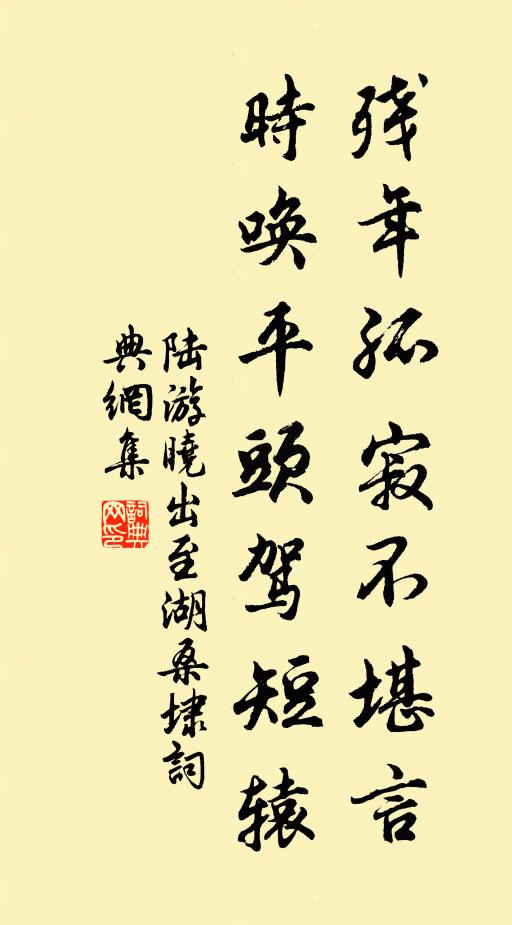 残年孤寂不堪言
時唤平頭驾短辕
陆游曉出至湖桑埭詞
典網集
詞典
网印